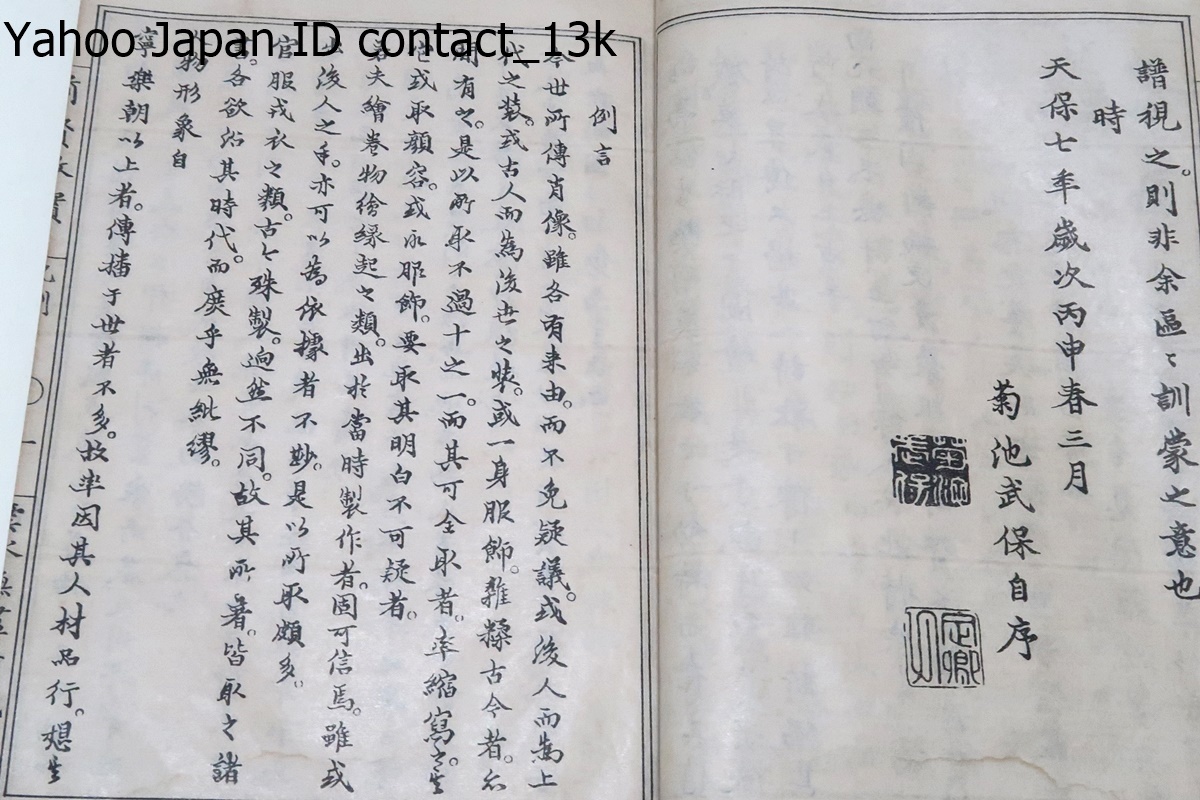 Yahoo Japan ID contact_13k
譜視之。則非余區〻訓蒙之意也
時
天保七年歲次丙申春三月
菊池武保自序
例言
今世所傳肖像。雖各有来由。而不免疑議。或後人而為上
代之装。或古人而為後世之装。或一身服飾。雜糅古今者。
間有之。是以所取不過十之一。而其可全取者。率縮寫之。
或取顔容。或取服飾。要取其明白不可疑者。
若夫繪卷物繪縁起之類。出於當時製作者。固可信焉。雖或
出後人之手。亦可以為依據者不尠。是以所取頗多。
官服戎衣之類。古今殊製。逈然不同。故其所著。皆取之諸
書。各欲俗其時代。而庶乎無紕繆。
物形象自
寧樂朝以上者。傳播于世者不多。故率因其人材品行。想